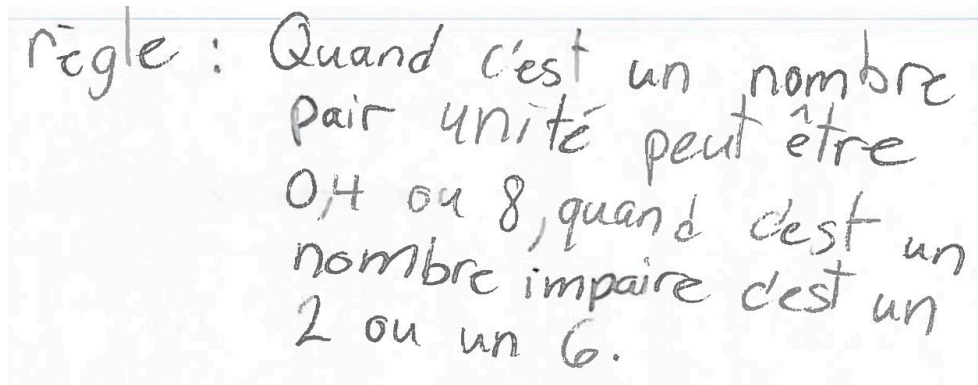 règle : Quand c'est un nombre
pair unité peut être
0,4 ou 8, quand c'est un
nombre impaire c'est un
2 ou un 6.